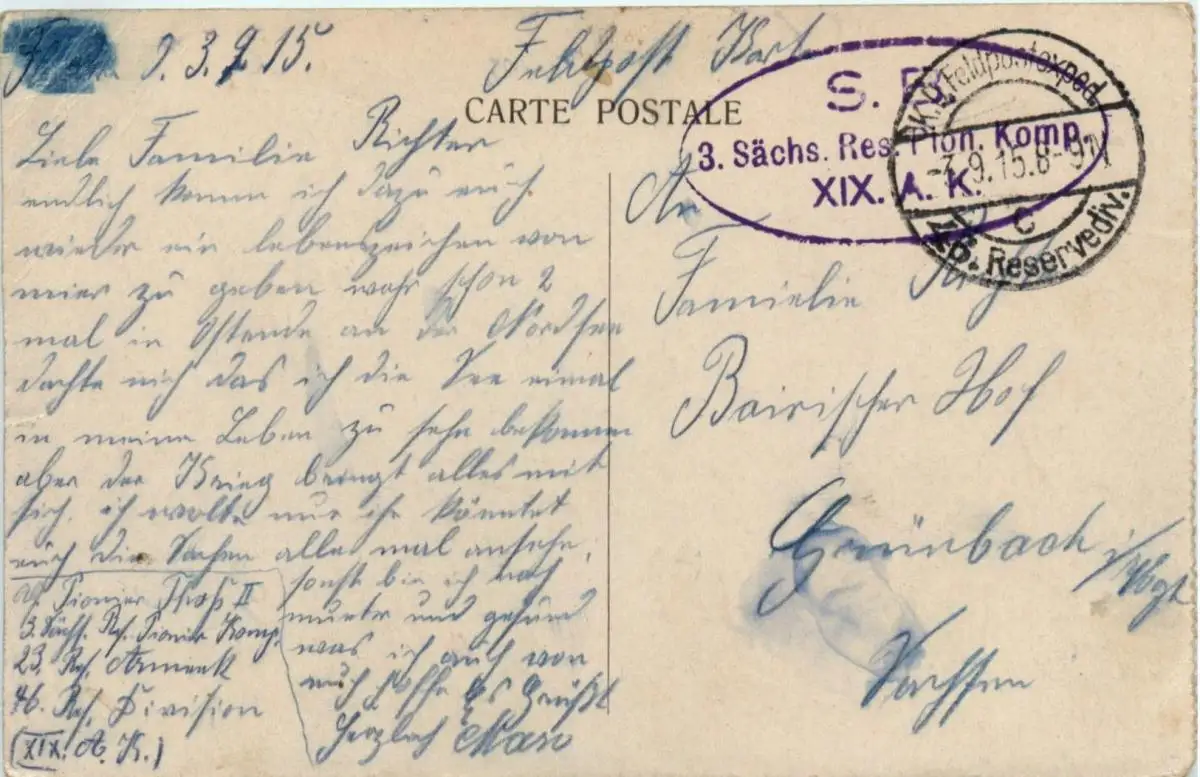 d. 3.9.15.
Feldpost Kart
CARTE POSTALE
S. B.
3. Sächs. Res. Pion. Komp.
XIX. A. K.
K.D. Feldpostexped.
-3.9.15.8-9 N
c
46. Reservediv.
Liebe Familie Richter
endlich komm ich dazu euch
wieder ein lebenszeichen von
mier zu geben wahr schon 2
mal in Ostende an der Nordsee
dachte nich das ich die See eimal
in meine Leben zu sehn bekomm
aber der Krieg bringt alles mit
sich. ich wollte nur ihr könntet
euch die Sachen alle mal ansehn,
sonst bin ich noch
munter und gesund
was ich auch von
euch hoffe Es Grüßt
Herzlich Max
Pionier Thoß II
3. Sächs. Res. Pionier Komp.
23. Res. Armeek
46. Res. Division
(XIX. A. K.)
An
Familie
Bairischer Hof
Grünbach i/Vogt
Sachsen